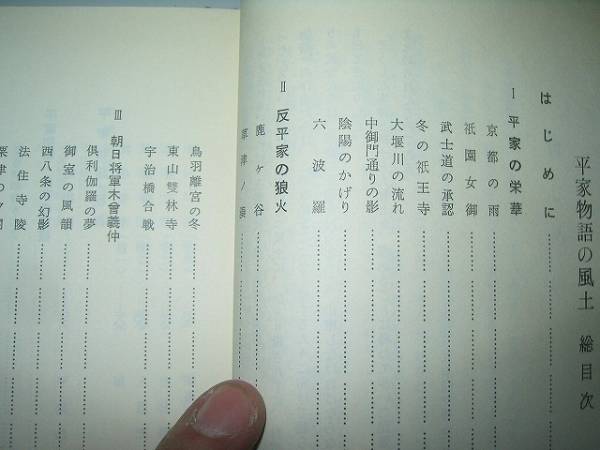 平家物語の風土 総目次
はじめに
I 平家の栄華
京都の雨
祇園女御
武士道の承認
冬の祇王寺
大堰川の流れ
中御門通りの影
陰陽のかげり
六波羅
II 反平家の狼火
鹿ヶ谷
鳥羽離宮の冬
東山雙林寺
宇治橋合戦
III 朝日将軍木曾義仲
倶利伽羅の夢
御室の風韻
西八条の幻影
法住寺陵